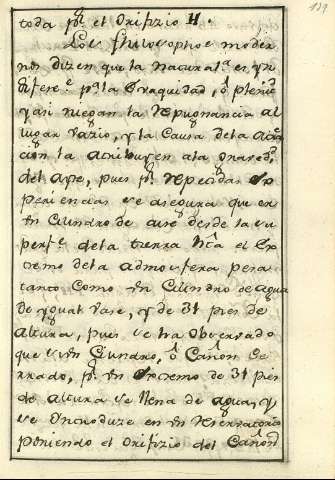 139
toda pr. el Orifizio H.
Los Philosophos moder
nos dizen que la Natural.a es yn
difere.e pa. la Vaquidad, ó plenit.d
y asi niegan la Repugnancia al
lugar Vazio, y la Causa de la
cion la atribuyen a la graved.d
del Ayre, pues pr. Repetidas ex
periencias se asegura que en
un Cilindro de aire desde la su
perf.e de la tierra hta. el Ex
tremo de la admosfera pesa
tanto Como un Cilindro de agua
de ygual vase, y de 31 pies de
Altura, pues se ha Observado
que si un Cilindro, ó Cañon Ce
rrado, pr. un extremo de 31 pies
de altura se llena de agua, y
se Introduze en un
poniendo el Orifizio del Cañon